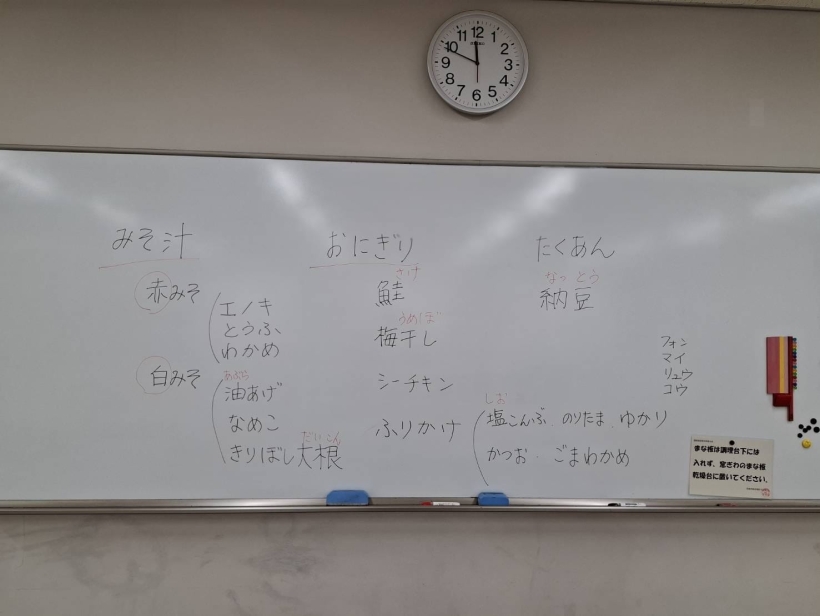 12
11 1
10 2
9 3
8 4
7 5
6
みそ汁
赤みそ
エノキ
とうふ
わかめ
白みそ
あぶら
油あげ
なめこ
だいこん
きりぼし大根
おにぎり
さけ
鮭
うめぼ
梅干し
シーチキン
ふりかけ
しお
塩こんぶ、のりたま、ゆかり
かつお、ごまわかめ
たくあん
なっとう
納豆
フォン
マイ
リュウ
コウ
まな板は調理台下には
入れず、窓ぎわのまな板
乾燥台に置いてください。